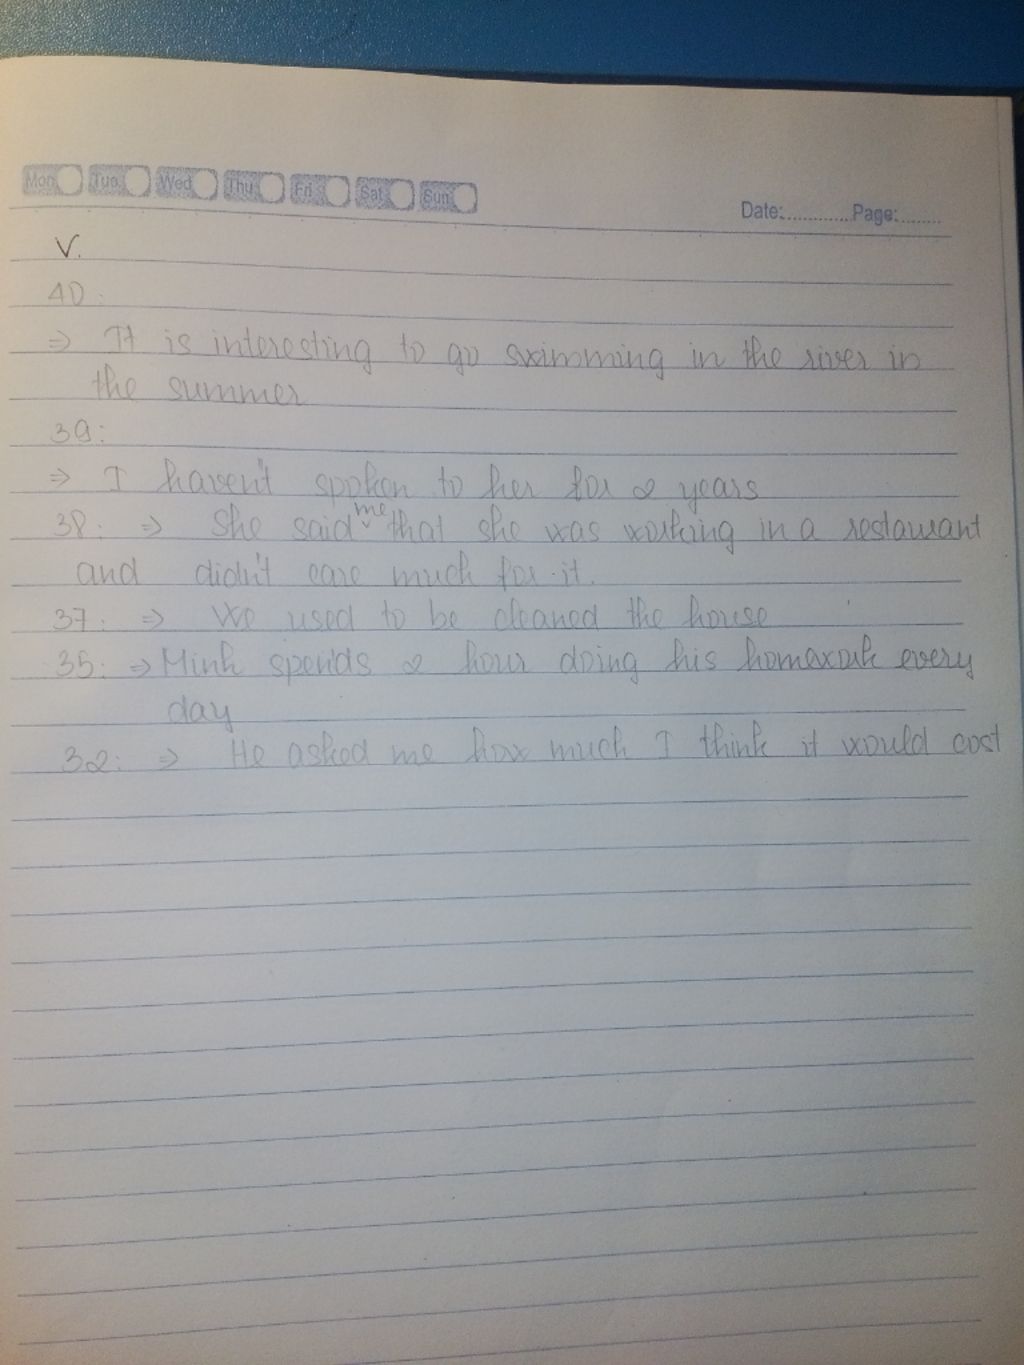 Mon Tue Wed Thu Fri Sat Sun
Date:............Page:........
V.
40:
⇒ It is interesting to go swimming in the river in
the summer
39:
⇒ I haven't spoken to her for 2 years
me
38: ⇒ She said ˅ that she was working in a restaurant
and didn't care much for it.
37: ⇒ We used to be cleaned the house
35: ⇒ Minh spends 2 hour doing his homework every
day
32: ⇒ He asked me how much I think it would cost